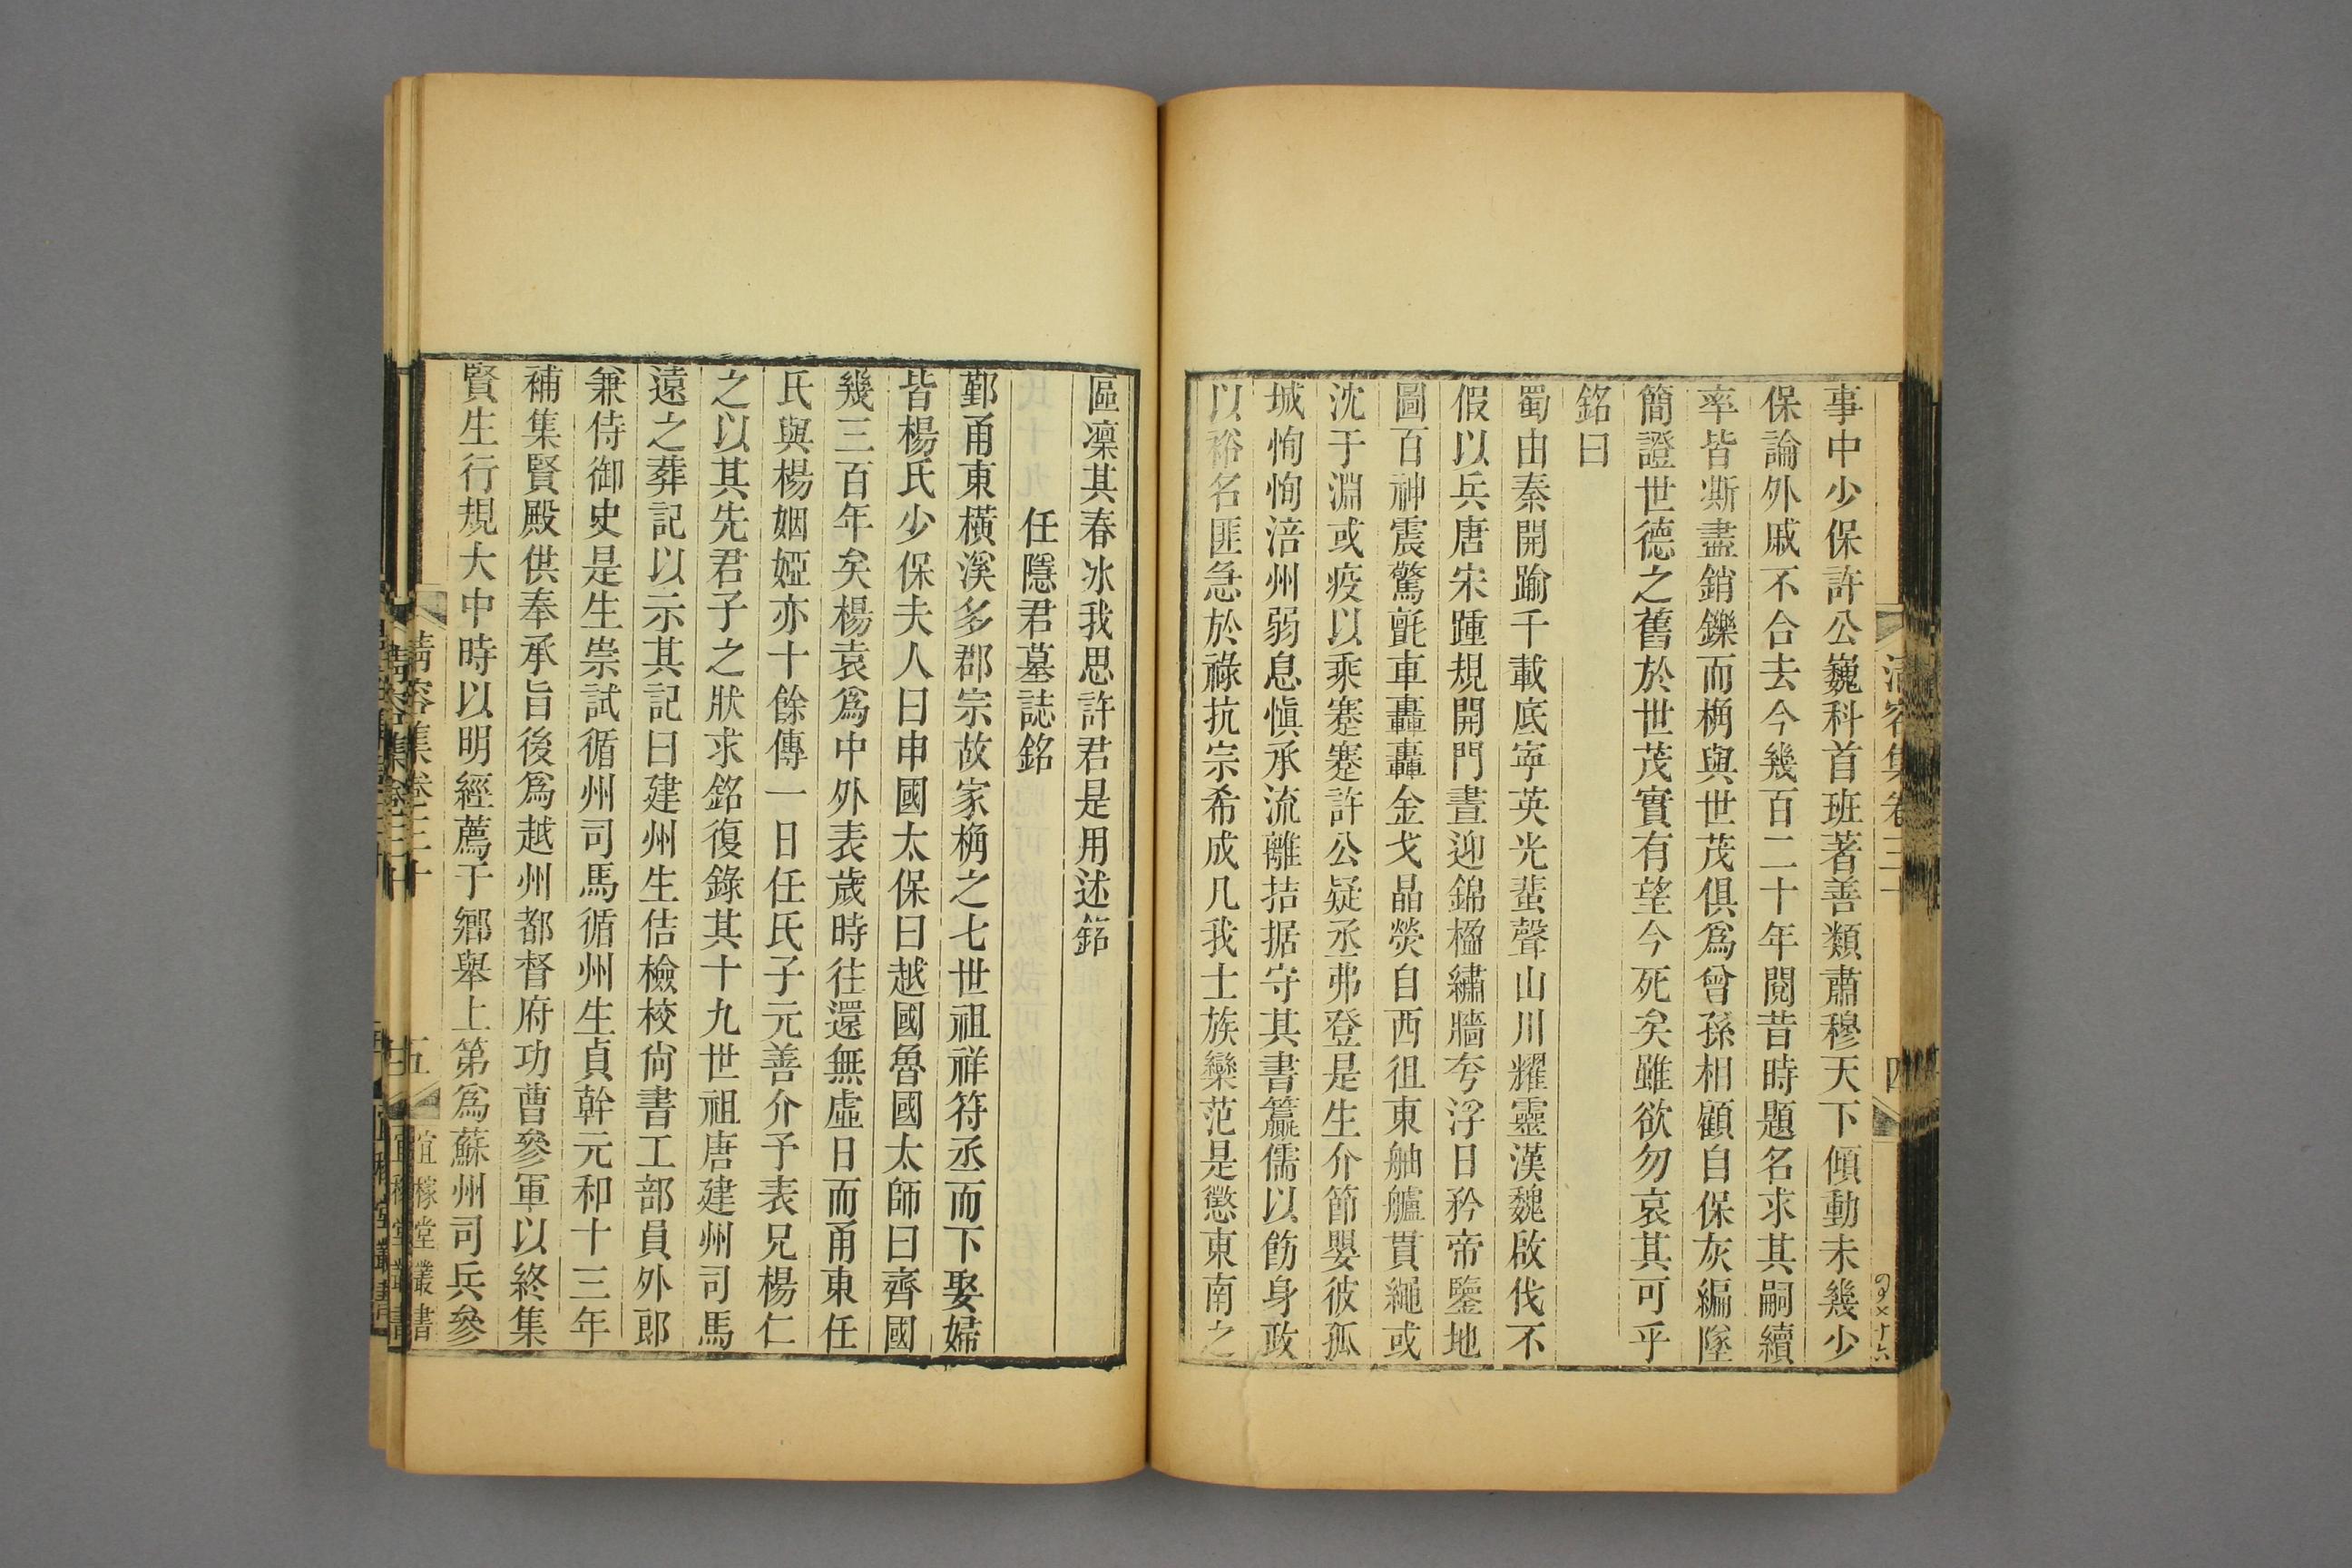 清容集卷三十
四
事中少保許公巍科首班著善類肅穆天下傾動未幾少
保論外戚不合去今幾百二十年閱昔時題名求其嗣續
率皆澌盡銷鑠而桷與世茂俱爲曾孫相顧自保灰編墜
簡證世德之舊於世茂實有望今死矣雖欲勿哀其可乎
銘曰
蜀由秦開踰千載底寧英光蜚聲山川耀靈漢魏啟伐不
假以兵唐宋踵規開門晝迎錦楹繡牆夸浮日矜帝鑒地
圖百神震驚氈車轟轟金戈晶熒自西徂東舳艫貫繩或
沈于淵或疫以乘蹇蹇許公疑丞弗登是生介節嬰彼孤
城恂恂涪州弱息愼承流離拮据守其書籯儒以飭身政
以裕名匪急於祿抗宗希成凡我士族欒范是懲東南之
區凜其春冰我思許君是用述銘
任隱君墓誌銘
鄞甬東橫溪多郡宗故家桷之七世祖祥符丞而下娶婦
皆楊氏少保夫人曰申國太保曰越國魯國太師曰齊國
幾三百年矣楊袁爲中外表歲時往還無虛日而甬東任
氏與楊姻婭亦十餘傳一日任氏子元善介予表兄楊仁
之以其先君子之狀求銘復錄其十九世祖唐建州司馬
遠之葬記以示其記曰建州生佶檢校尚書工部員外郎
兼侍御史是生崇試循州司馬循州生貞幹元和十三年
補集賢殿供奉承旨後爲越州都督府功曹參軍以終集
賢生行規大中時以明經薦于鄉舉上第爲蘇州司兵參
清容集卷三十
五
宜稼堂叢書